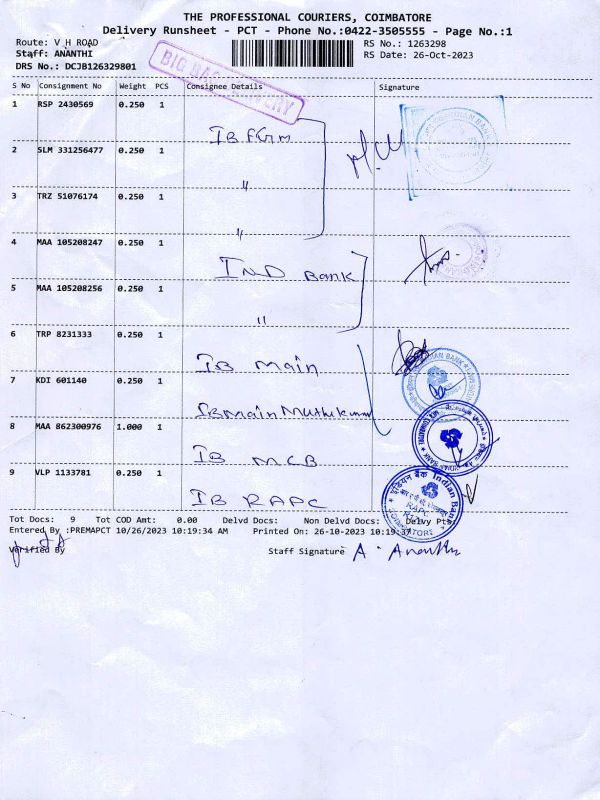 THE PROFESSIONAL COURIERS, COIMBATORE
Delivery Runsheet - PCT - Phone No.:0422-3505555 - Page No.:1
Route: V H ROAD
RS No.: 1263298
Staff: ANANTHI
RS Date: 26-Oct-2023
DRS No.: DCJB126329801
BIG BAG
S No Consignment No Weight PCS Consignee Details Signature
1 RSP 2430569 0.250 1
IB FGM
2 SLM 331256477 0.250 1
"
3 TRZ 51076174 0.250 1
"
4 MAA 105208247 0.250 1
IND BANK
5 MAA 105208256 0.250 1
"
6 TRP 8231333 0.250 1
IB Main
7 KDI 601140 0.250 1
IB Main
8 MAA 862300976 1.000 1
IB MCB
9 VLP 1133781 0.250 1
IB RAPC
इंडियन बैंक Indian Bank
RAPC
COIMBATORE
Tot Docs: 9 Tot COD Amt: 0.00 Delvd Docs: Non Delvd Docs: Delvy Pts
Entered By :PREMAPCT 10/26/2023 10:19:34 AM Printed On: 26-10-2023 10:19:37
Verified By
Staff Signature A. Ananthi